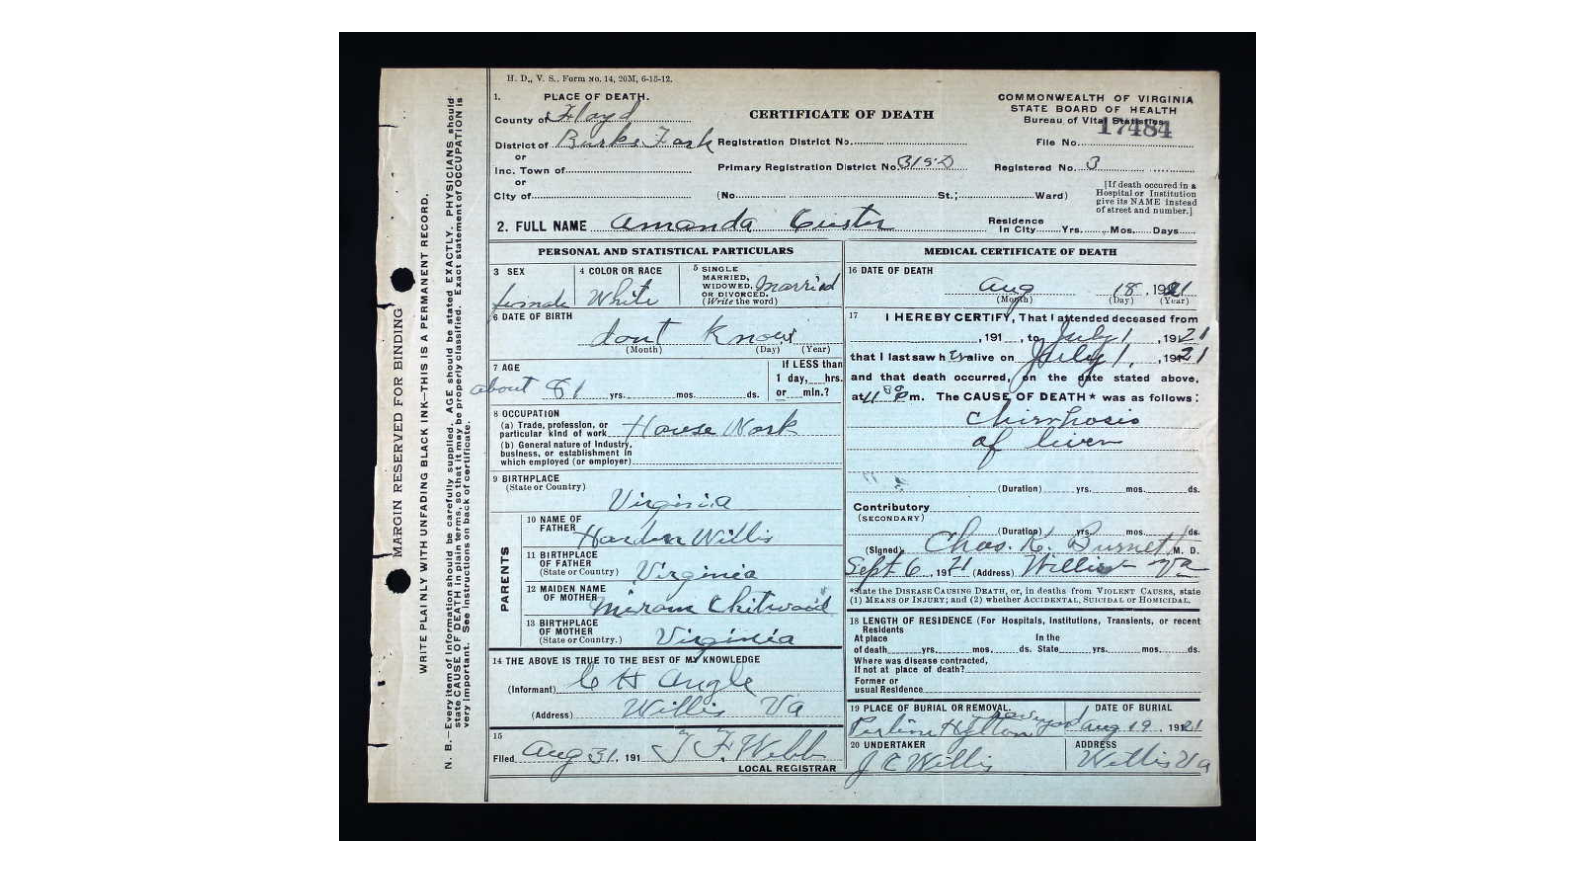 H. D., V. S., Form No. 14, 20M, 6-15-12.
1. PLACE OF DEATH.
County of Floyd
District of Burks Fork
or
Inc. Town of
or
City of
CERTIFICATE OF DEATH
Registration District No.
Primary Registration District No. 3152
(No. St.; Ward)
COMMONWEALTH OF VIRGINIA
STATE BOARD OF HEALTH
Bureau of Vital Statistics
17484
File No.
Registered No. 3
[If death occured in a
Hospital or Institution
give its NAME instead
of street and number.]
2. FULL NAME Amanda Custer
Residence
In City Yrs. Mos. Days
PERSONAL AND STATISTICAL PARTICULARS
3 SEX
female
4 COLOR OR RACE
White
5 SINGLE
MARRIED,
WIDOWED,
OR DIVORCED.
(Write the word)
Married
6 DATE OF BIRTH
dont know
(Month) (Day) (Year)
7 AGE
about 81 yrs. mos. ds.
If LESS than
1 day, hrs.
or min.?
8 OCCUPATION
(a) Trade, profession, or
particular kind of work House Work
(b) General nature of Industry,
business, or establishment in
which employed (or employer)
9 BIRTHPLACE
(State or Country)
Virginia
PARENTS
10 NAME OF
FATHER Harden Willis
11 BIRTHPLACE
OF FATHER
(State or Country) Virginia
12 MAIDEN NAME
OF MOTHER Miriam Chitwood
13 BIRTHPLACE
OF MOTHER
(State or Country.) Virginia
14 THE ABOVE IS TRUE TO THE BEST OF MY KNOWLEDGE
(Informant) C H Angle
(Address) Willis Va
15
Filed Aug 31, 191 T F Webb
LOCAL REGISTRAR
MEDICAL CERTIFICATE OF DEATH
16 DATE OF DEATH
Aug 18, 1921
(Month) (Day) (Year)
17 I HEREBY CERTIFY, That I attended deceased from
, 191 , to July 1 , 1921
that I last saw h er alive on July 1, , 1921
and that death occurred, on the date stated above,
at 11 P m. The CAUSE OF DEATH* was as follows:
Chirrhosis
of liver
(Duration) yrs. mos. ds.
Contributory
(SECONDARY)
(Duration) yrs. mos. ds.
(Signed) Chas. K. Burnett M. D.
Sept 6, 1921 (Address) Willis Va
*State the DISEASE CAUSING DEATH, or, in deaths from VIOLENT CAUSES, state
(1) MEANS OF INJURY; and (2) whether ACCIDENTAL, SUICIDAL or HOMICIDAL.
18 LENGTH OF RESIDENCE (For Hospitals, Institutions, Transients, or recent
Residents
At place In the
of death yrs. mos. ds. State yrs. mos. ds.
Where was disease contracted,
If not at place of death?
Former or
usual Residence
19 PLACE OF BURIAL OR REMOVAL.
Hylton graveyard
DATE OF BURIAL
Aug 19 1921
20 UNDERTAKER
J C Willis
ADDRESS
Willis Va
MARGIN RESERVED FOR BINDING
WRITE PLAINLY WITH UNFADING BLACK INK—THIS IS A PERMANENT RECORD.
N. B.—Every item of information should be carefully supplied. AGE should be stated EXACTLY. PHYSICIANS should
state CAUSE OF DEATH in plain terms, so that it may be properly classified. Exact statement of OCCUPATION is
very important. See instructions on back of certificate.